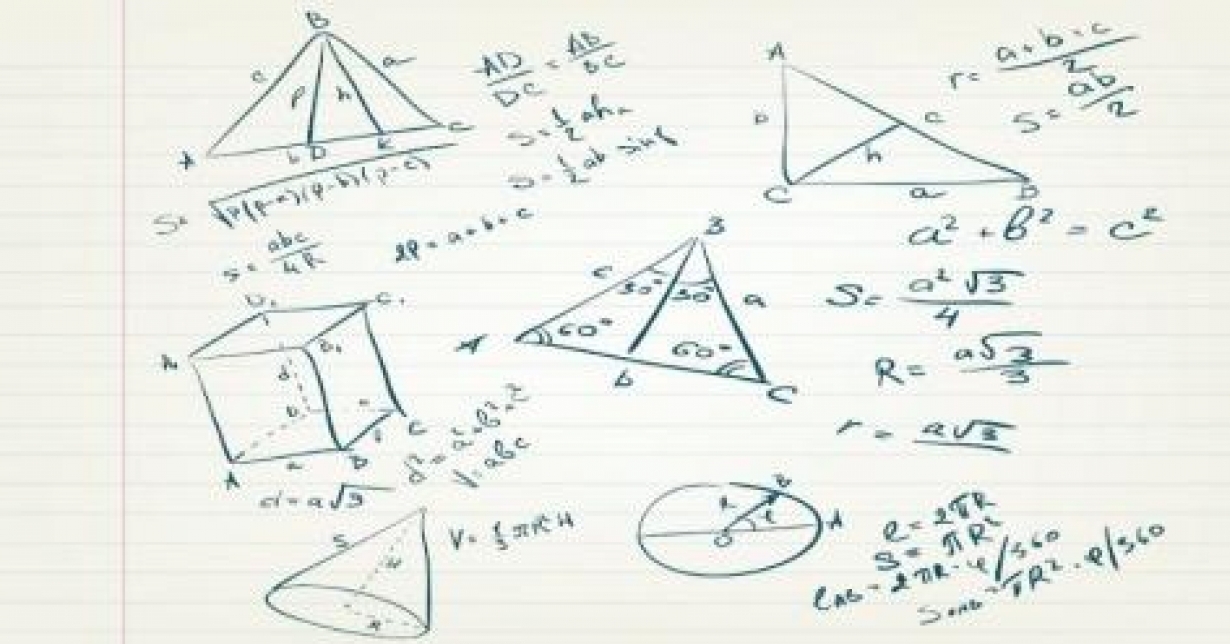 B
c
a
P
h
A
b
D
K
C
AD/DC = AB/BC
S = 1/2 ah
S = 1/2 ab sin
S = √p(p-a)(p-b)(p-c)
S = abc/4R
2P = a+b+c
A
b
c
h
C
a
B
r = a+b-c/2
S = ab/2
a² + b² = c²
B
c
30°
30°
a
60°
60°
A
b
C
S = a²√3/4
R = a√3/3
r = a√3
D₁
C₁
A₁
B₁
d
D
c
b
C
A
a
B
d² = a²+b²+c²
V = abc
d = a√3
S
H
R
V = 1/3 πR²H
R
B
φ
O
A
l = 2πR
S = πR²
l AB = 2πR·φ/360
S OAB = πR²·φ/360